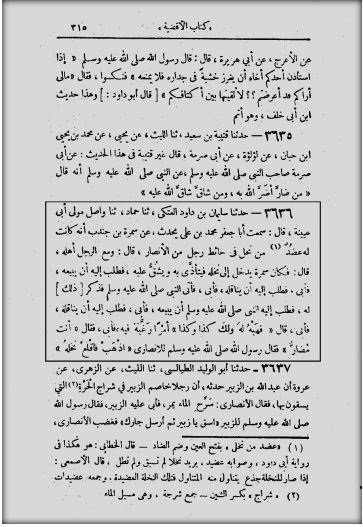 « كتاب الأقضية » ٣١٥
عن الأعرج، عن أبي هريرة، قال: قال رسول الله صلى الله عليه وسلم « إذا
استأذن أحدكم أخاه أن يغرز خشبة في جداره فلا يمنعه » فنكسوا، فقال « مالى
أراكم قد أعرضتم ؟؟ لألقينها بين أكتافكم » [ قال أبو داود : ] وهذا حديث
ابن أبى خلف، وهو أتم
٣٦٣٥ — حدثنا قتيبة بن سعيد، ثنا الليث، عن يحيى، عن محمد بن يحيى
ابن حبان، عن لؤلؤة، عن أبى صرمة، قال غير قتيبة فى هذا الحديث : عن أبى
صرمة صاحب النبى صلى الله عليه وسلم، عن النبى صلى الله عليه وسلم أنه قال
« من ضارَّ أضرَّ الله به، ومن شاقَّ شاقَّ الله عليه »
٣٦٣٦ — حدثنا سليمان بن داود العتكى، ثنا حماد، ثنا واصل مولى أبى
عيينة، قال : سمعت أبا جعفر محمد بن على يحدث، عن سمرة بن جندب أنه كانت
له عضد (١) من نخل فى حائط رجل من الأنصار، قال : ومع الرجل أهله،
قال : فكان سمرة يدخل إلى نخله فيتأذَّى به ويشقُّ عليه، فطلب إليه أن يبيعه،
فأبى، فطلب إليه أن يناقله، فأبى، فأتى النبى صلى الله عليه وسلم فذكر [ ذلك ]
له، فطلب إليه النبى صلى الله عليه وسلم أن يبيعه، فأبى، فطلب إليه أن يناقله،
فأبى، قال « فهَبْهُ لهُ ولك كذا وكذا » أمراً رغَّبه فيه، فأبى، فقال « أنت
مُضارٌّ » فقال رسول الله صلى الله عليه وسلم للأنصارى « اذْهَبْ فاقلَعْ نخله »
٣٦٣٧ — حدثنا أبو الوليد الطيالسى، ثنا الليث، عن الزهرى، عن
عروة أن عبد الله بن الزبير حدثه، أن رجلا خاصم الزبير فى شراج الحَرَّة (٢) التي
يسقون بها، فقال الأنصارى : سَرِّح الماء يمر، فأبى عليه الزبير، فقال رسول الله
صلى الله عليه وسلم للزبير « اسق يا زبير ثم أرسل إلى جارك » فغضب الأنصارى،
(١) « عضد من نخل » بفتح العين وضم الضاد — قال الخطابى : هو هكذا فى
رواية أبى داود، وصوابه عضيد، يريد نخلا لم تبسق ولم تطل، قال الأصمعى :
إذا صار للنخلة جذع يتناول منه المتناول فتلك النخلة العضيدة، وجمعه عضيدات
(٢) « شراج » بكسر الشين — جمع شرجة، وهى مسيل الماء